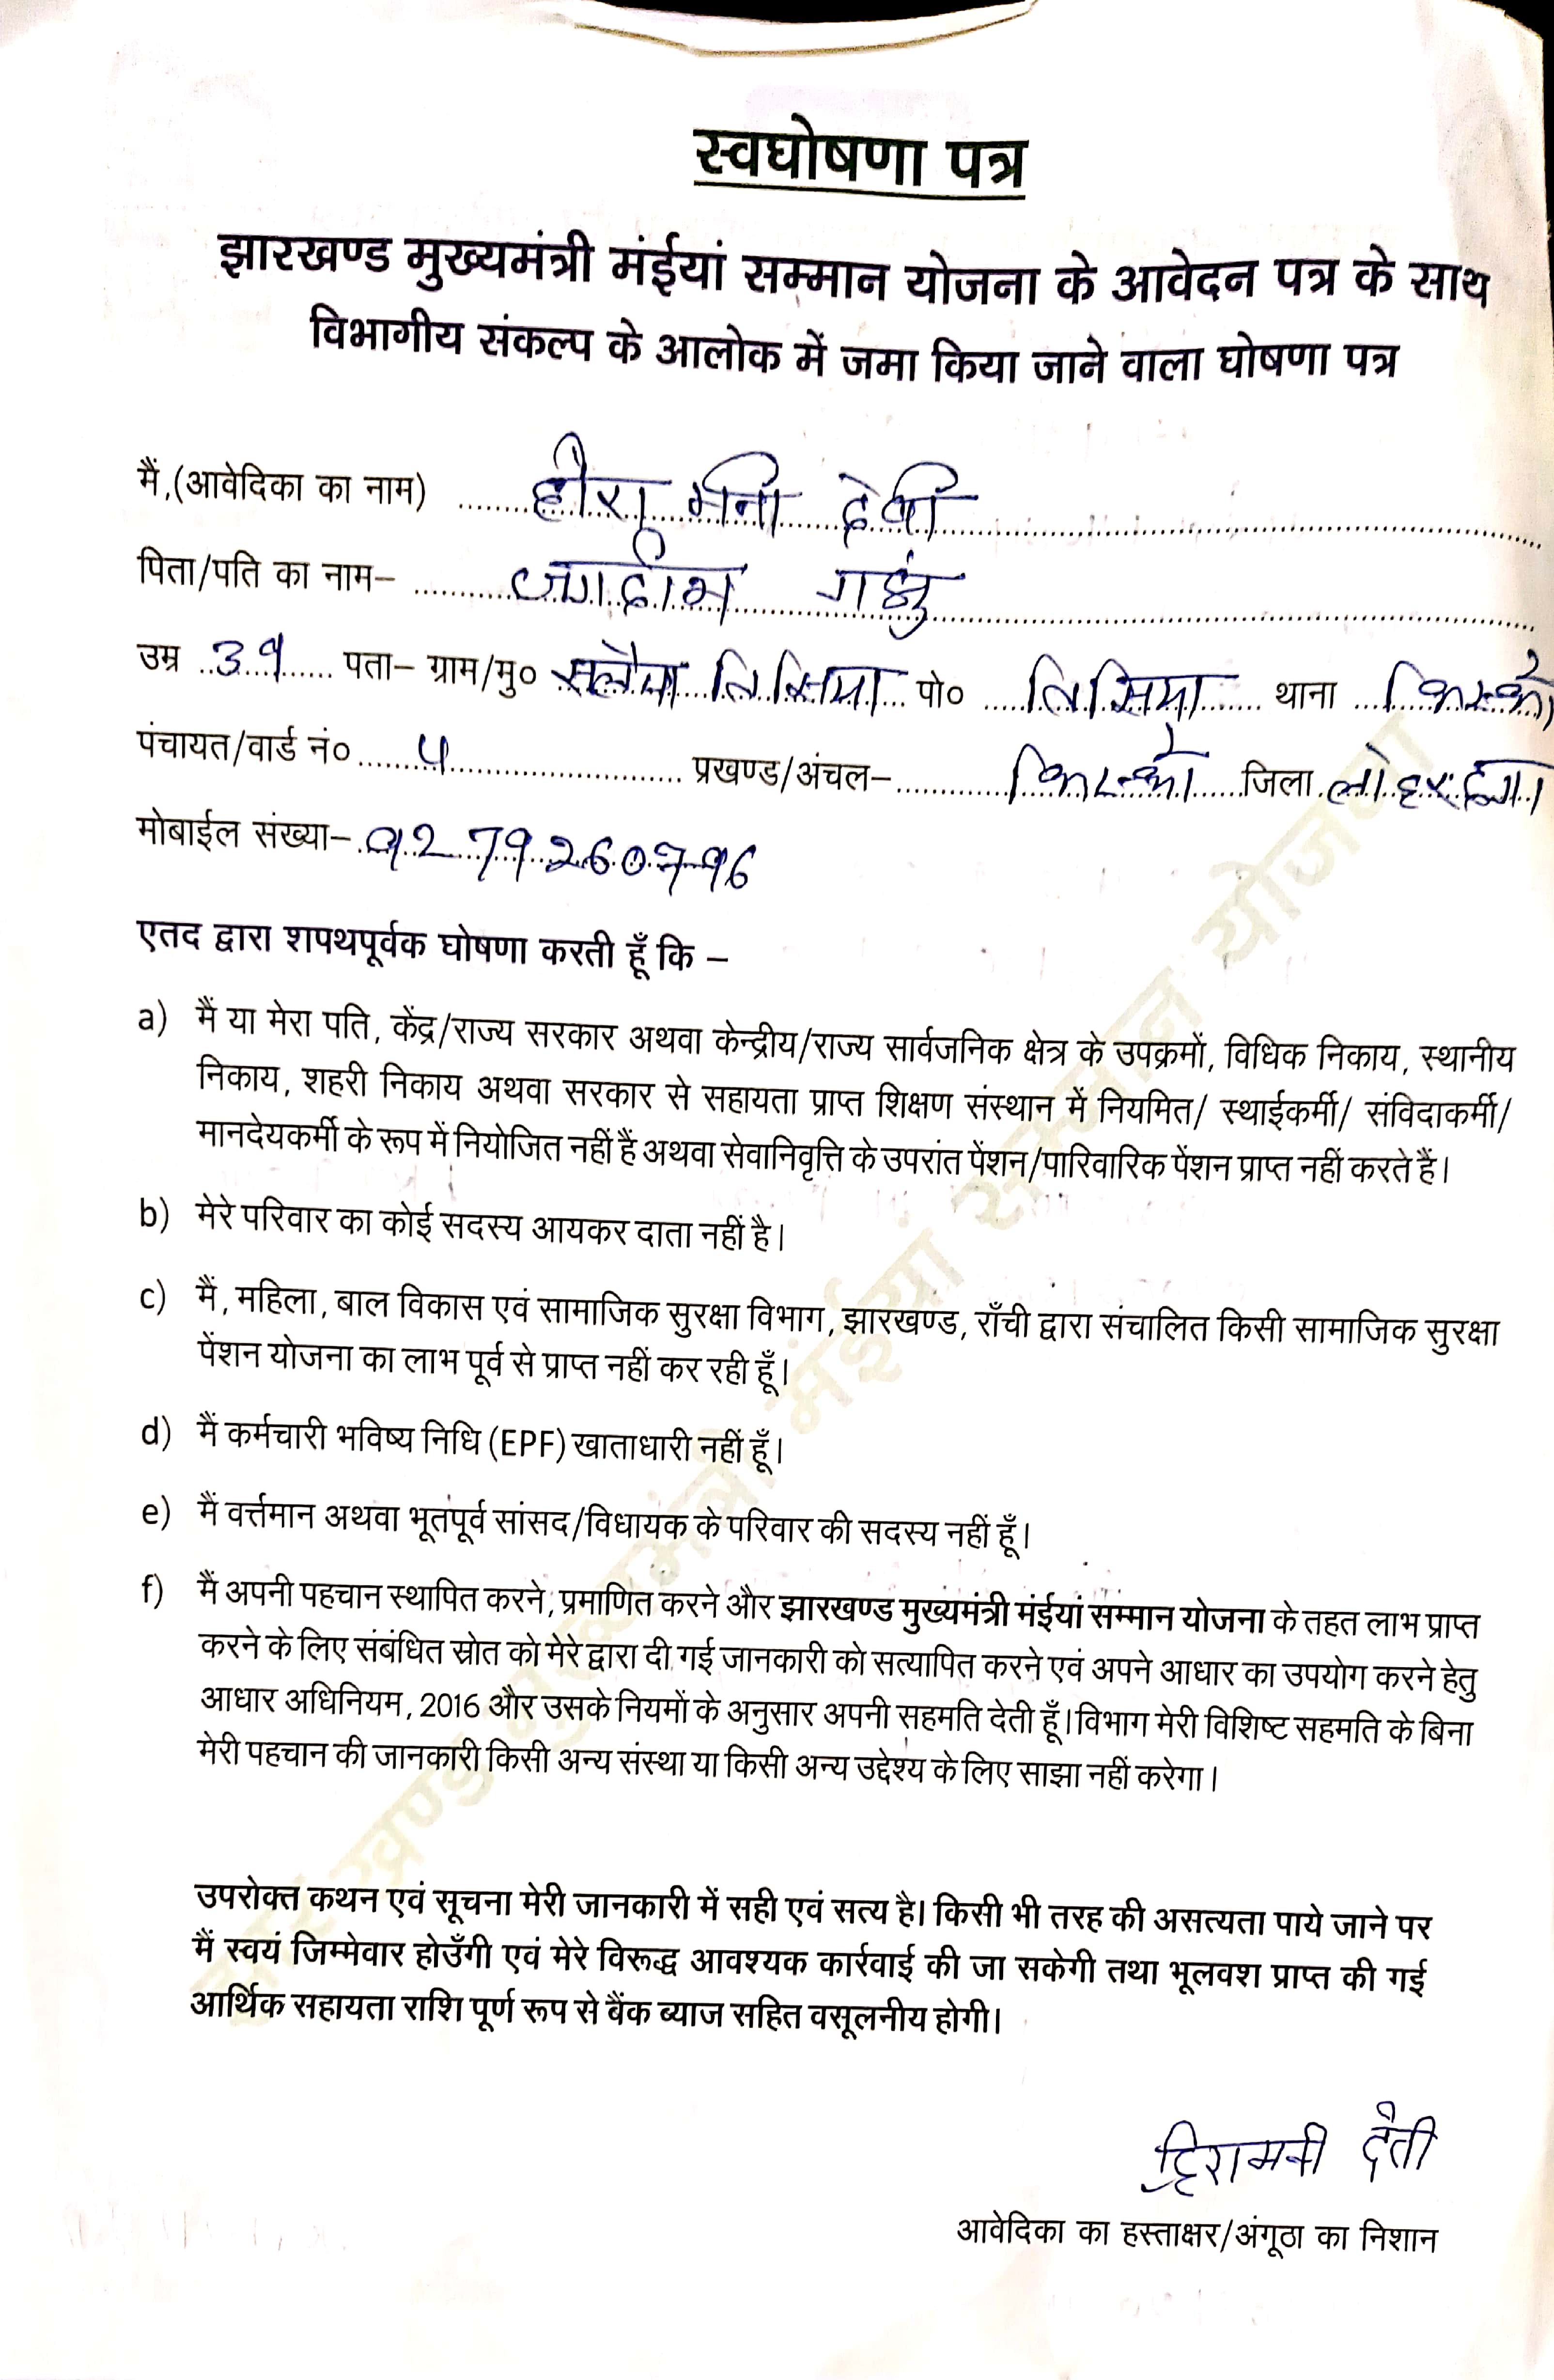 स्वघोषणा पत्र
झारखण्ड मुख्यमंत्री मंईयां सम्मान योजना के आवेदन पत्र के साथ
विभागीय संकल्प के आलोक में जमा किया जाने वाला घोषणा पत्र
मैं,(आवेदिका का नाम) हीरा मनी देवी
पिता/पति का नाम–
उम्र 39 पता– ग्राम/मु० तिसिया पो० तिसिया थाना किस्को
पंचायत/वार्ड नं० प्रखण्ड/अंचल– किस्को जिला लोहरदगा
मोबाईल संख्या–
एतद द्वारा शपथपूर्वक घोषणा करती हूँ कि –
a) मैं या मेरा पति, केंद्र/राज्य सरकार अथवा केन्द्रीय/राज्य सार्वजनिक क्षेत्र के उपक्रमों, विधिक निकाय, स्थानीय
निकाय, शहरी निकाय अथवा सरकार से सहायता प्राप्त शिक्षण संस्थान में नियमित/ स्थाईकर्मी/ संविदाकर्मी/
मानदेयकर्मी के रूप में नियोजित नहीं हैं अथवा सेवानिवृत्ति के उपरांत पेंशन/पारिवारिक पेंशन प्राप्त नहीं करते हैं।
b) मेरे परिवार का कोई सदस्य आयकर दाता नहीं है।
c) मैं, महिला, बाल विकास एवं सामाजिक सुरक्षा विभाग, झारखण्ड, राँची द्वारा संचालित किसी सामाजिक सुरक्षा
पेंशन योजना का लाभ पूर्व से प्राप्त नहीं कर रही हूँ।
d) मैं कर्मचारी भविष्य निधि (EPF) खाताधारी नहीं हूँ।
e) मैं वर्त्तमान अथवा भूतपूर्व सांसद/विधायक के परिवार की सदस्य नहीं हूँ।
f) मैं अपनी पहचान स्थापित करने, प्रमाणित करने और झारखण्ड मुख्यमंत्री मंईयां सम्मान योजना के तहत लाभ प्राप्त
करने के लिए संबंधित स्रोत को मेरे द्वारा दी गई जानकारी को सत्यापित करने एवं अपने आधार का उपयोग करने हेतु
आधार अधिनियम, 2016 और उसके नियमों के अनुसार अपनी सहमति देती हूँ। विभाग मेरी विशिष्ट सहमति के बिना
मेरी पहचान की जानकारी किसी अन्य संस्था या किसी अन्य उद्देश्य के लिए साझा नहीं करेगा।
उपरोक्त कथन एवं सूचना मेरी जानकारी में सही एवं सत्य है। किसी भी तरह की असत्यता पाये जाने पर
मैं स्वयं जिम्मेवार होउँगी एवं मेरे विरूद्ध आवश्यक कार्रवाई की जा सकेगी तथा भूलवश प्राप्त की गई
आर्थिक सहायता राशि पूर्ण रूप से बैंक ब्याज सहित वसूलनीय होगी।
आवेदिका का हस्ताक्षर/अंगूठा का निशान
झारखण्ड मुख्यमंत्री मंईयां सम्मान योजना